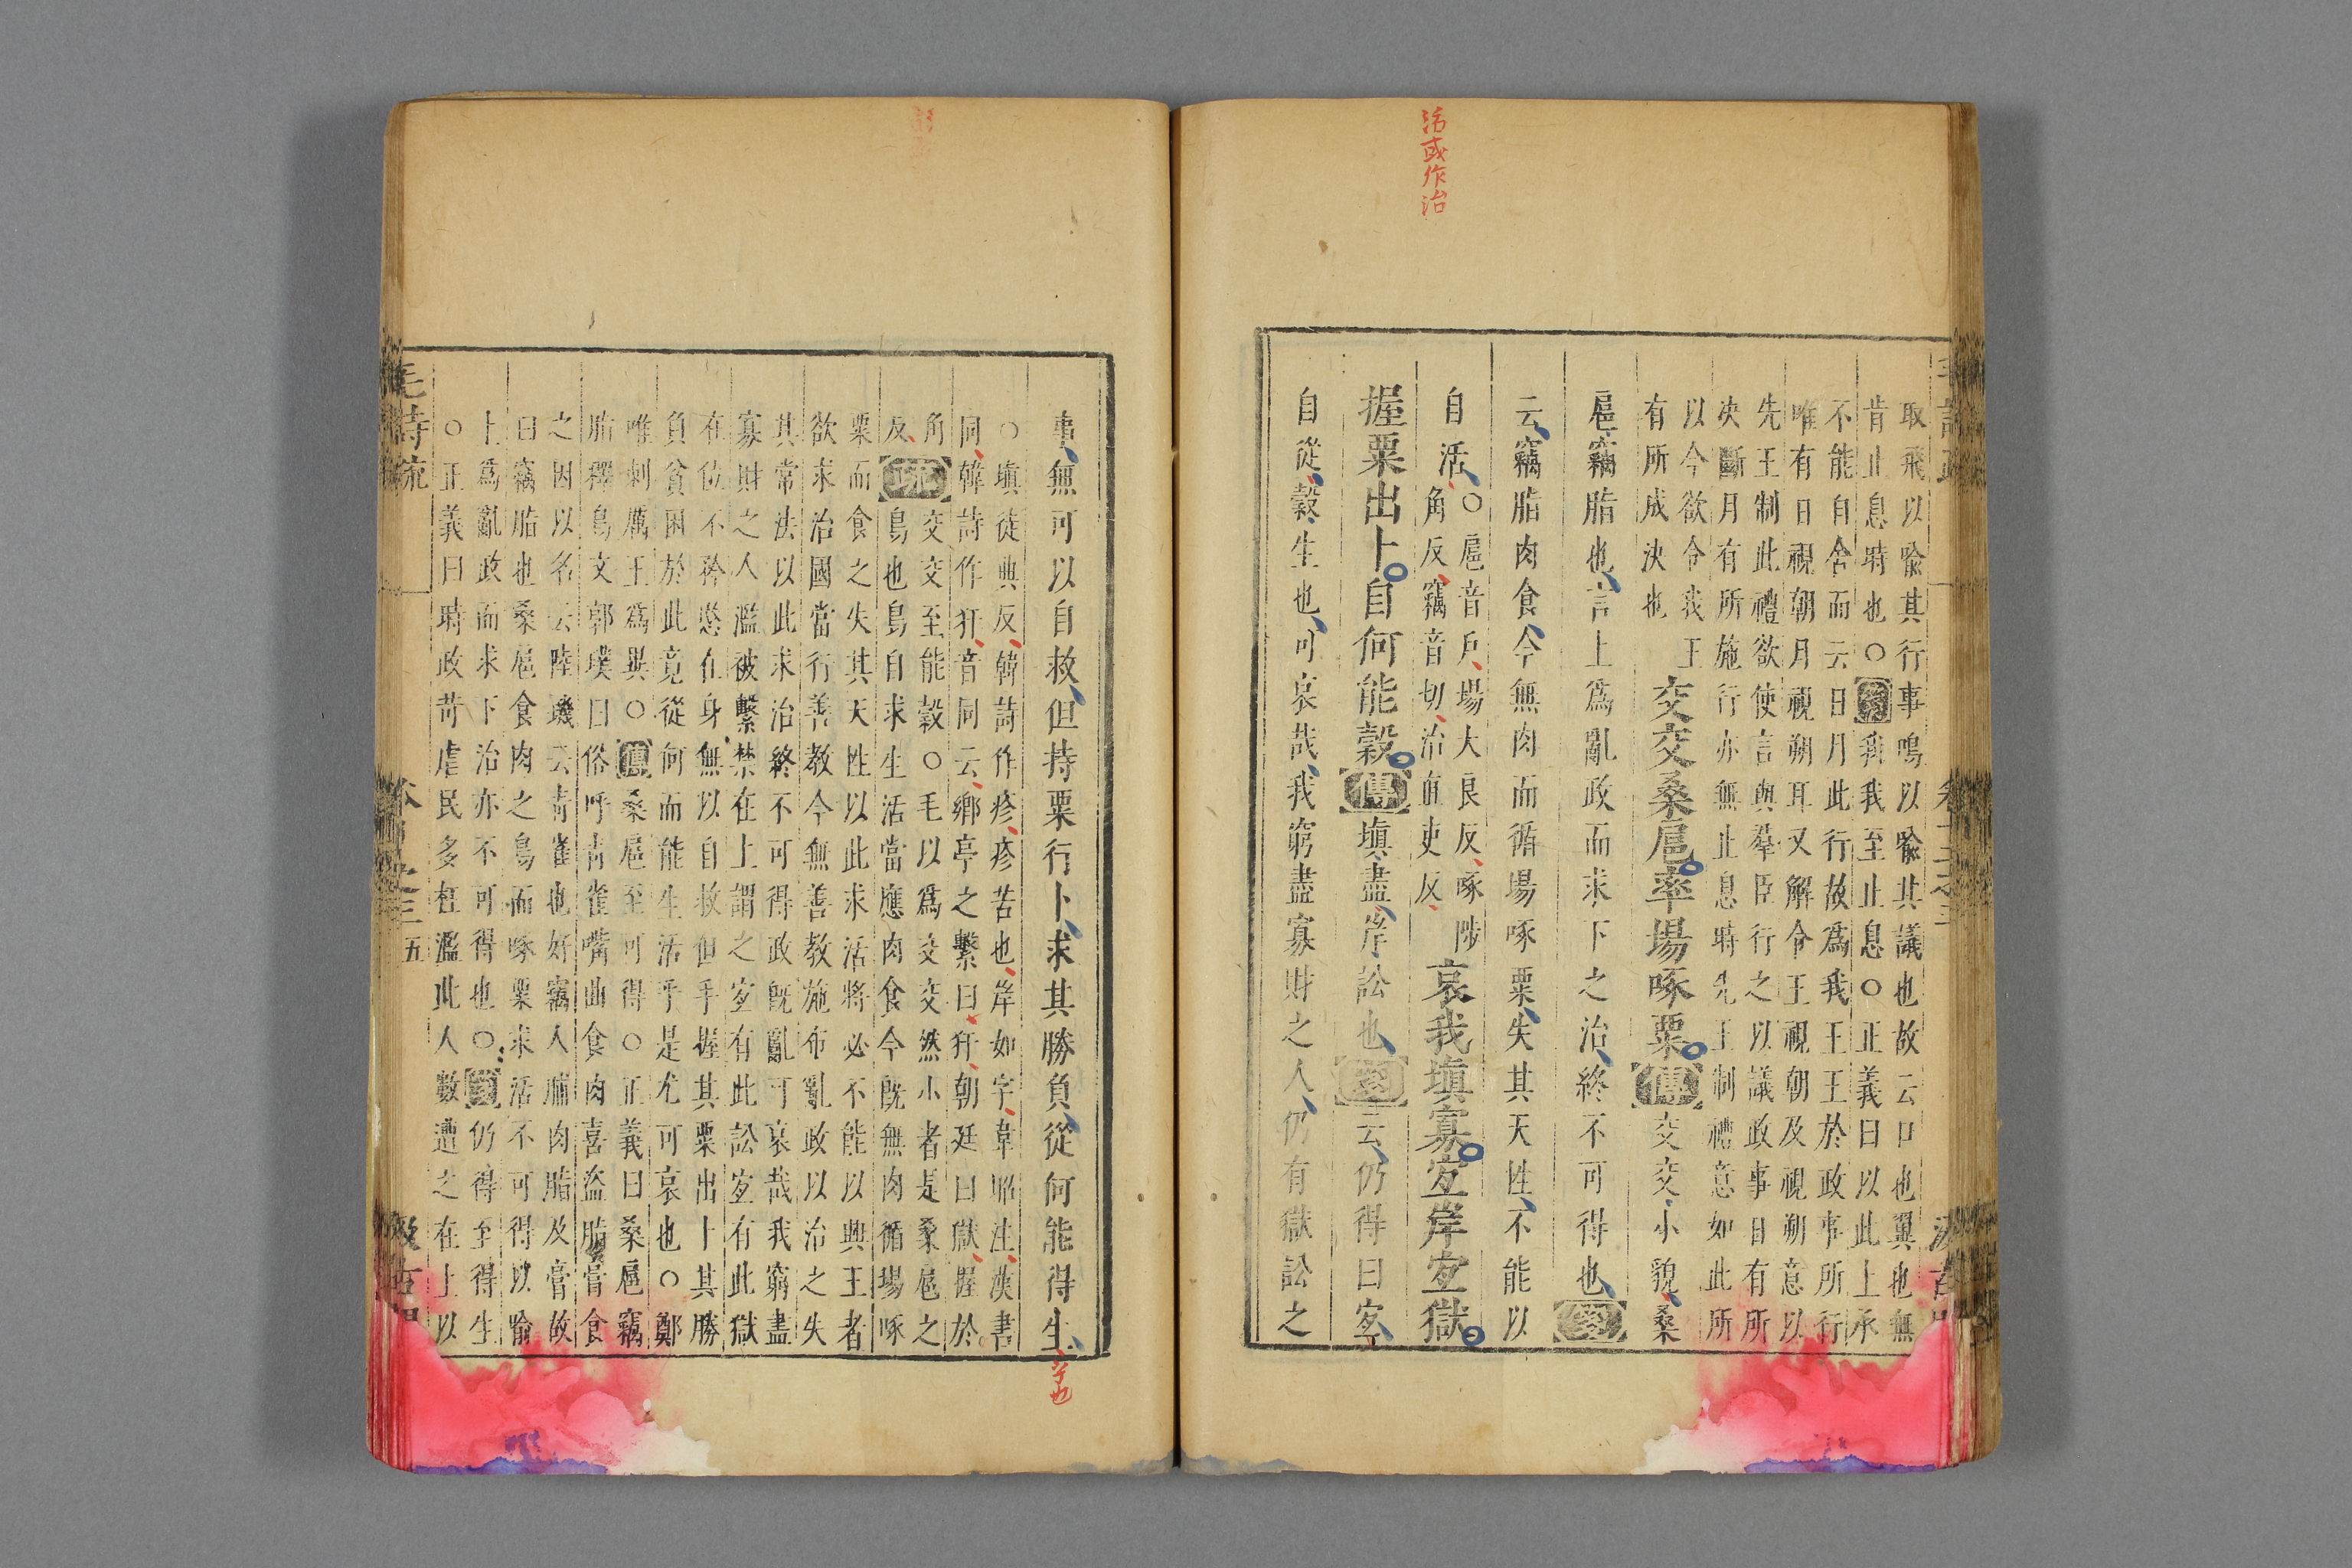 活或作治
取飛以喻其行事鳴以喻其議也故云口也翼也無
肯止息時也○箋我我至止息○正義曰以此上承
不能自舍而云日月此行故為我王王於政事所行
唯有日視朝月視朔耳又解令王視朝及視朔意以
先王制此禮欲使言與羣臣行之以議政事日有所
决斷月有所施行亦無止息時先王制禮意如此所
以今欲令我王
有所成決也
交交桑扈率場啄粟傳交交小貌桑
扈竊脂也言上為亂政而求下之治終不可得也箋
云竊脂肉食今無肉而循場啄粟失其天性不能以
自活○扈音戶場大良反啄陟
角反竊音切治直吏反
哀我填寡宜岸宜獄
握粟出卜自何能穀傳填盡岸訟也箋云仍得曰宜
自從穀生也可哀哉我窮盡寡財之人仍有獄訟之
事無可以自救但持粟行卜求其勝負從何能得生
字也
○填徒典反韓詩作疹疹苦也岸如字韋昭注漢書
同韓詩作犴音同云鄉亭之繫曰犴朝廷曰獄握於
角反疏交交至能穀○毛以為交交然小者是桑扈之
鳥也鳥自求生活當應肉食今既無肉循場啄
粟而食之失其天性以此求活將必不能以興王者
欲求治國當行善教今無善教施布亂政以治之失
其常法以此求治終不可得政既亂可哀哉我窮盡
寡財之人濫被繫禁在上謂之宜有此訟宜有此獄
在位不矜愍在身無以自救但手握其粟出卜其勝
負貧困於此竟從何而能生活乎是尤可哀也○鄭
唯刺厲王為異○傳桑扈至可得○正義曰桑扈竊
脂釋鳥文郭璞曰俗呼青雀嘴曲食肉喜盜脂膏食
之因以名云陸璣云青雀也好竊人脯肉脂及膏故
曰竊脂也桑扈食肉之鳥而啄粟求活不可得以喻
上為亂政而求下治亦不可得也○箋仍得至得生
○正義曰時政苛虐民多枉濫此人數遭之在上以
毛詩疏
五